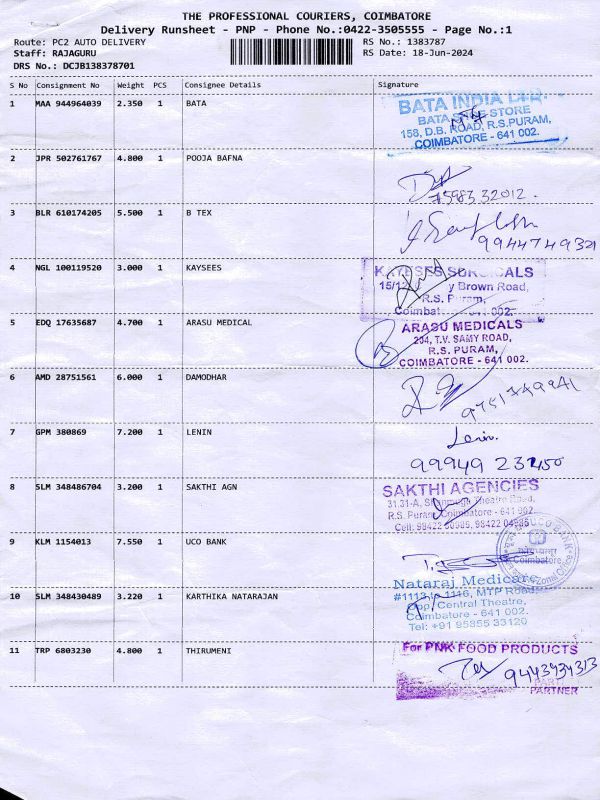 THE PROFESSIONAL COURIERS, COIMBATORE
Delivery Runsheet - PNP - Phone No.:0422-3505555 - Page No.:1
Route: PC2 AUTO DELIVERY RS No.: 1383787
Staff: RAJAGURU RS Date: 18-Jun-2024
DRS No.: DCJB138378701
S No Consignment No Weight PCS Consignee Details Signature
1 MAA 944964039 2.350 1 BATA
BATA INDIA
BATA STORE
158, D.B. ROAD, R.S.PURAM,
COIMBATORE - 641 002.
2 JPR 502761767 4.800 1 POOJA BAFNA
75983 32012
3 BLR 610174205 5.500 1 B TEX
9944749321
4 NGL 100119520 3.000 1 KAYSEES
KAYESES SURGICALS
y Brown Road,
R.S. Puram,
Coimbat 002.
5 EDQ 17635687 4.700 1 ARASU MEDICAL
ARASU MEDICALS
204, T.V. SAMY ROAD,
R.S. PURAM,
COIMBATORE - 641 002.
6 AMD 28751561 6.000 1 DAMODHAR
7 GPM 380869 7.200 1 LENIN
Lenin.
8 SLM 348486704 3.200 1 SAKTHI AGN
SAKTHI AGENCIES
31,31-A, Shanmuga Theatre Road,
R.S. Puram, Coimbatore - 641 002.
Cell: 98422
9 KLM 1154013 7.550 1 UCO BANK
UCO BANK
Coimbatore
Zonal Office
10 SLM 348430489 3.220 1 KARTHIKA NATARAJAN
Nataraj Medicare
#1113 to 1116, MTP Road
Opp. Central Theatre,
Coimbatore - 641 002.
Tel: +91 95855 33120
11 TRP 6803230 4.800 1 THIRUMENI
For PNK FOOD PRODUCTS
PARTNER